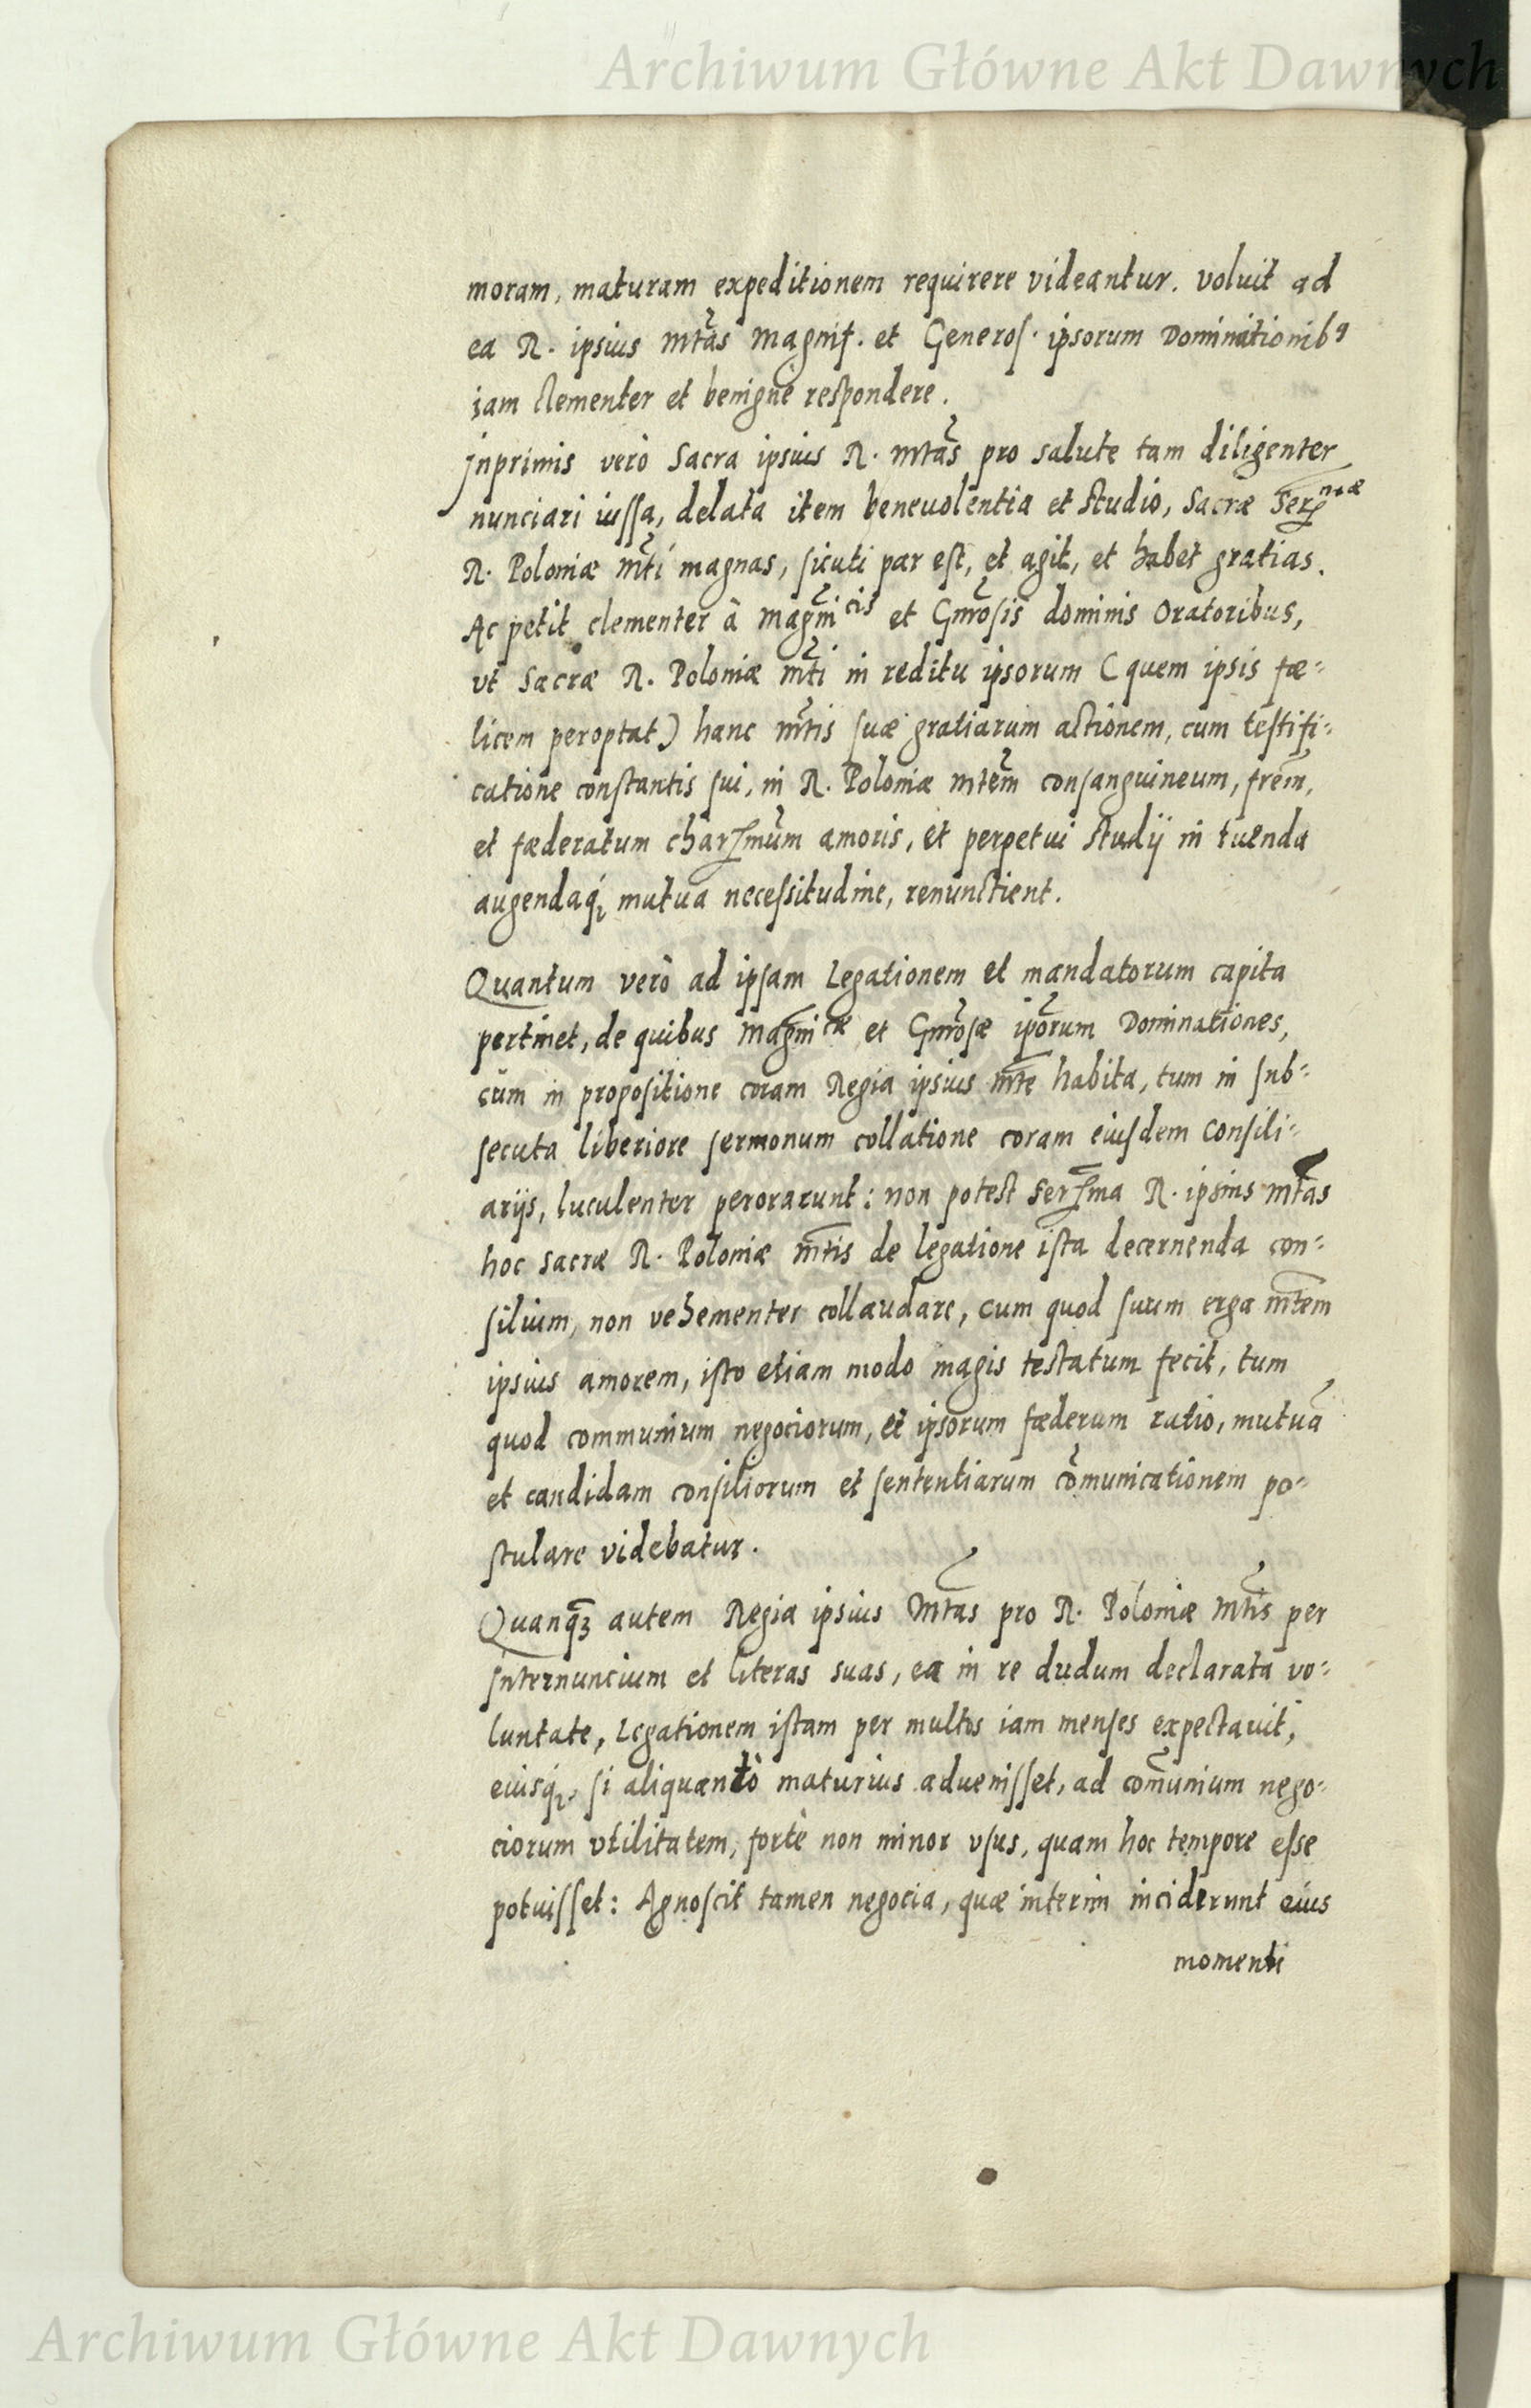 Archiwum Główne Akt Dawnych
moram, maturam expeditionem requirere videantur. voluit ad
ea R. ipsius Mtas Magnif. et Generos. ipsorum Dominationibꝰ
iam clementer et benigne respondere.
Inprimis verò Sacra ipsius R. Mtas pro salute tam diligenter
nunciari iussa, delata item beneuolentia et studio, Sacræ Ser^mæ
R. Poloniæ Mti magnas, sicuti par est, et agit, et habet gratias.
Ac petit clementer à Magni^cis et Gnrosis dominis Oratoribus,
vt Sacræ R. Poloniæ Mti in reditu ipsorum (quem ipsis fæ-
licem peroptat) hanc Mtis suæ gratiarum actionem, cum testifi-
catione constantis sui, in R. Poloniæ Mtem consanguineum, frem,
et fæderatum charſmum amoris, et perpetui studij in tuenda
augendaq́ʒ mutua necessitudine, renunctient.
Quantum verò ad ipsam Legationem et mandatorum capita
pertinet, de quibus Magni^cæ et Gnrosæ iporum Dominationes,
cùm in propositione coram Regia ipsius Mte habita, tum in sub-
secuta liberiore sermonum collatione coram eiusdem Consili-
arijs, luculenter perorarunt: non potest Serſma R. ipsius Mtas
hoc Sacræ R. Poloniæ Mtis de legatione ista decernenda con-
silium, non vehementer collaudare, cum quod suum erga Mtem
ipsius amorem, isto etiam modo magis testatum fecit, tum
quod communium negociorum, et ipsorum fæderum ratio, mutuã
et candidam consiliorum et sententiarum cõmunicationem po-
stulare videbatur.
Quanq̃ʒ autem Regia ipsius Mtas pro R. Poloniæ Mtis per
Internuncium et literas suas, ea in re dudum declarata vo-
luntate, Legationem istam per multos iam menses expectauit,
eiusq́ʒ, si aliquantò maturius aduenisset, ad comũnium nego-
ciorum vtilitatem, fortè non minor vsus, quam hoc tempore esse
potuisset: Agnoscit tamen negocia, quæ interim inciderunt eius
momenti
Archiwum Główne Akt Dawnych